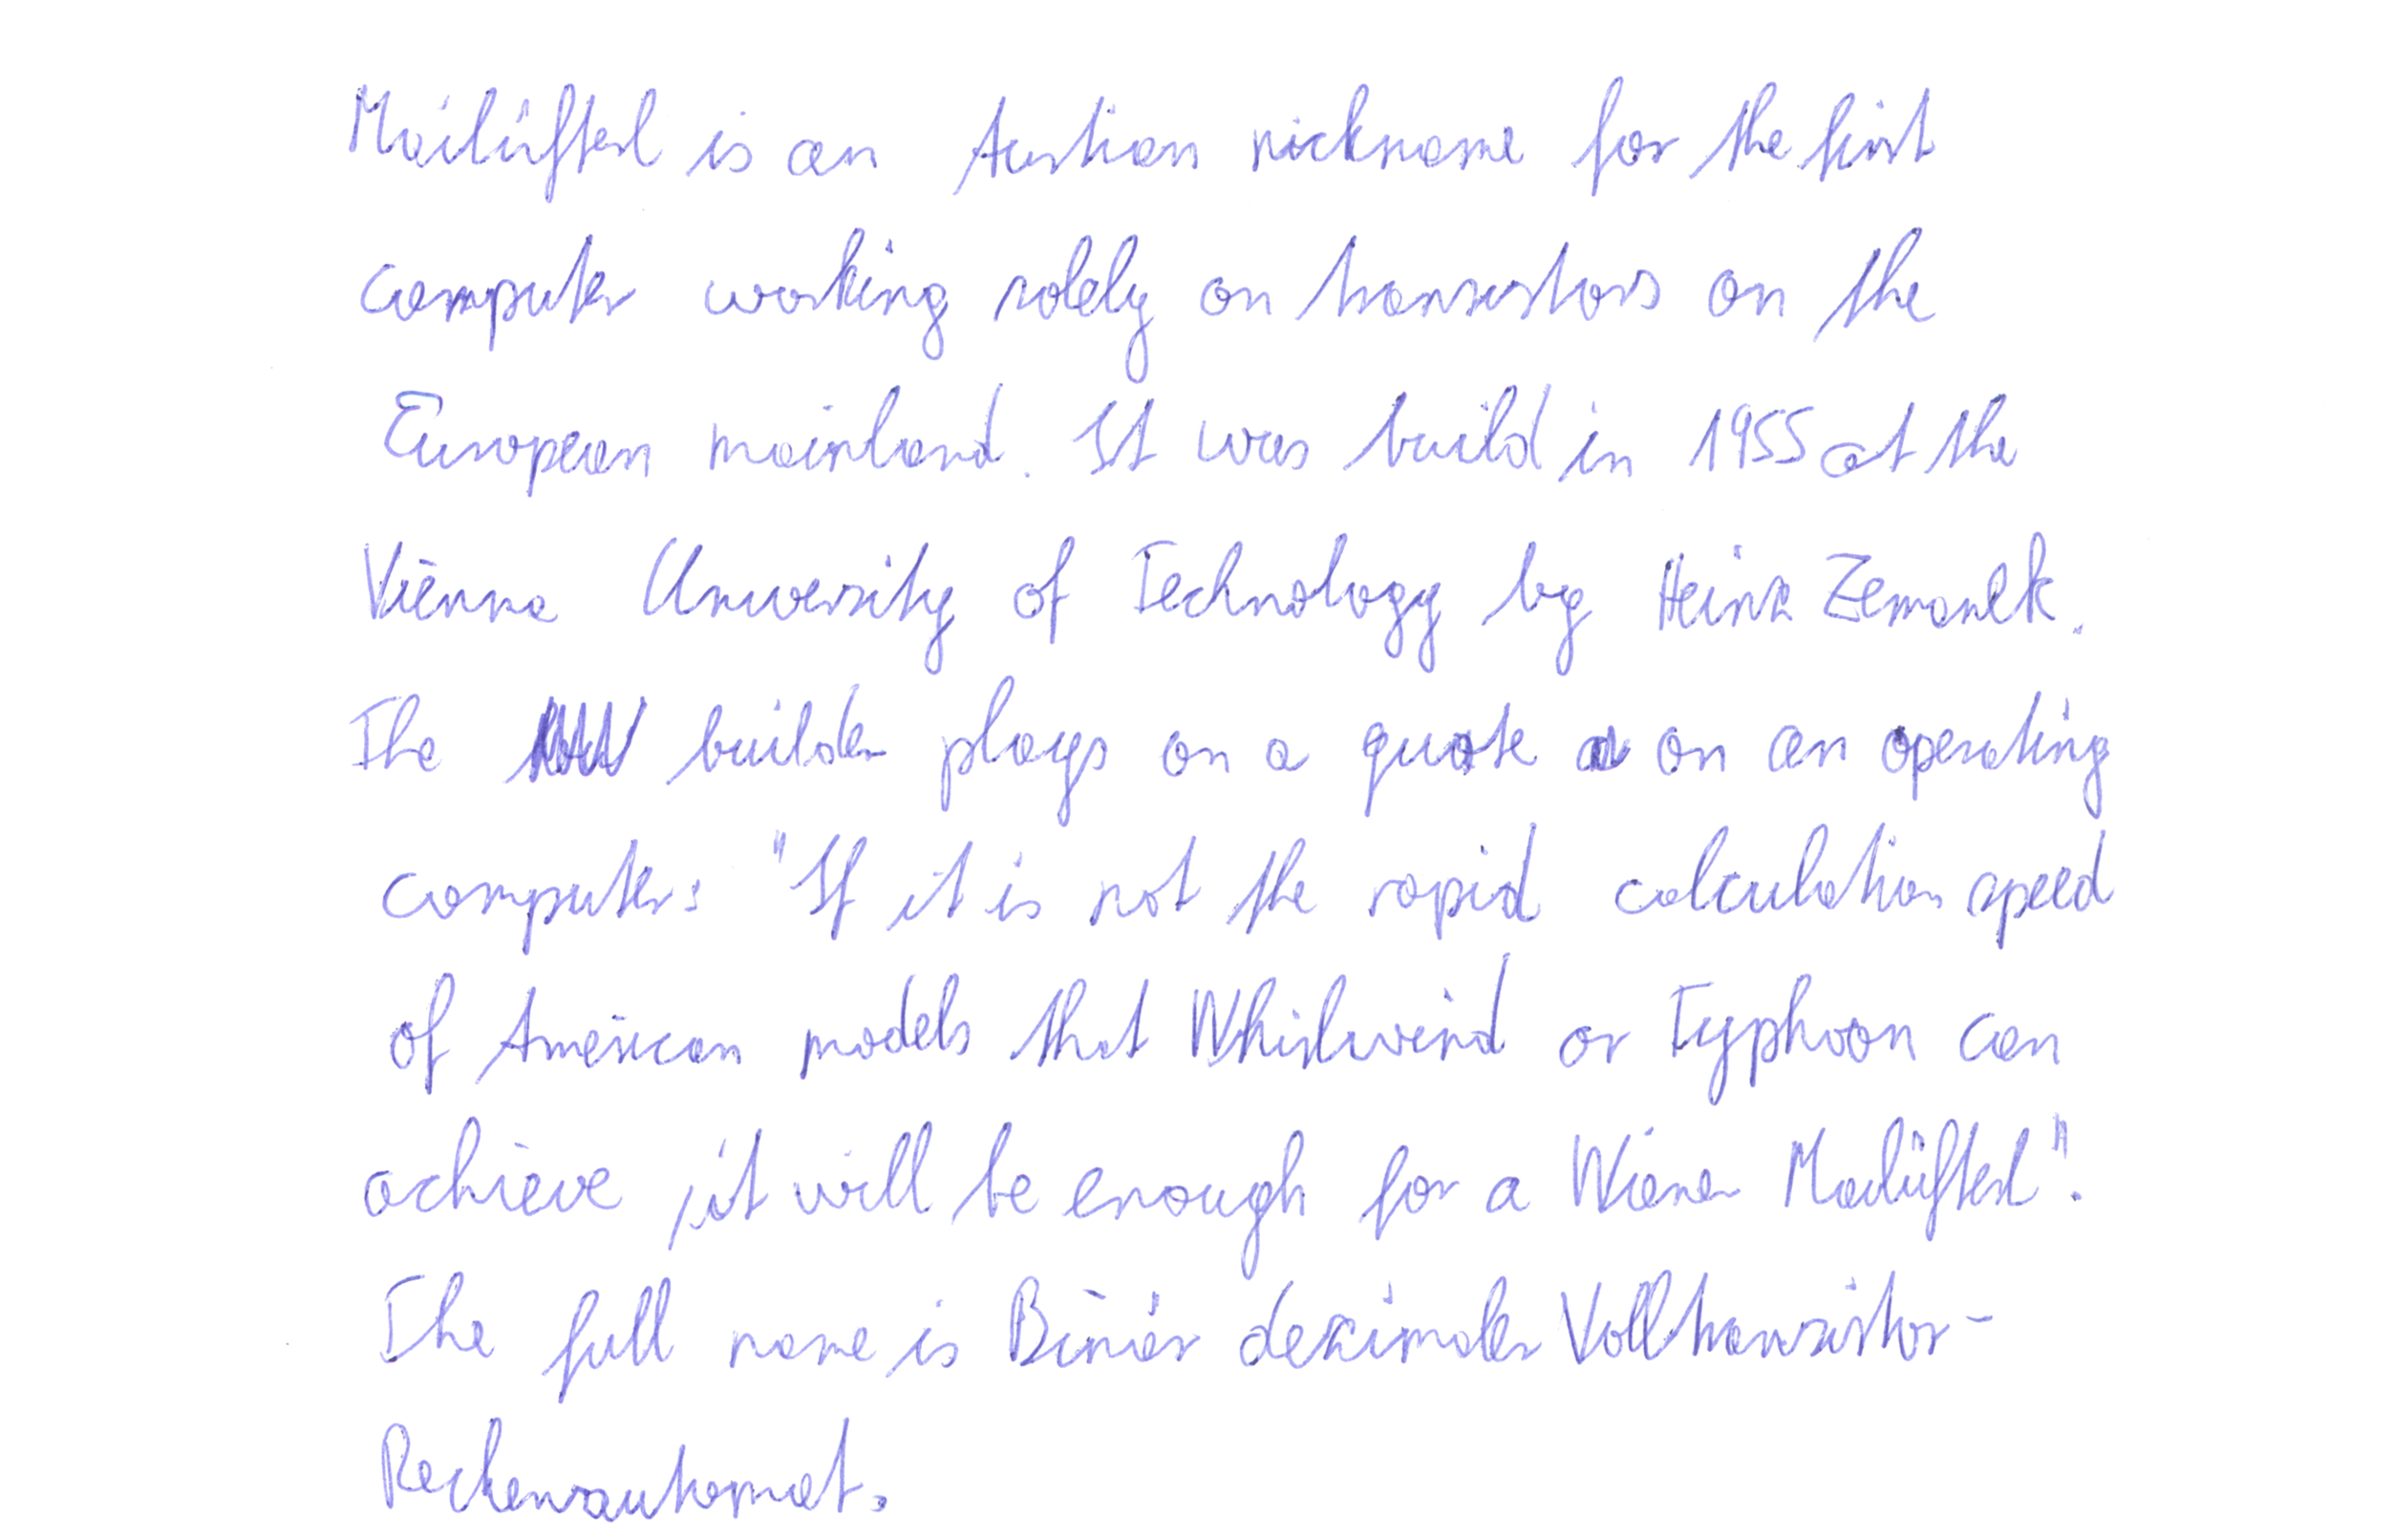 Mailüfterl is an Austrian nickname for the first
computer working solely on transistors on the
European mainland. It was build in 1955 at the
Vienna University of Technology by Heinz Zemanek.
The builder plays on a quote on an operating
computer: "If it is not the rapid calculation speed
of American models that Whirlwind or Typhoon can
achieve, it will be enough for a Wiener Mailüfterl".
The full name is Binär dezimaler Volltransistor-
Rechenautomat.